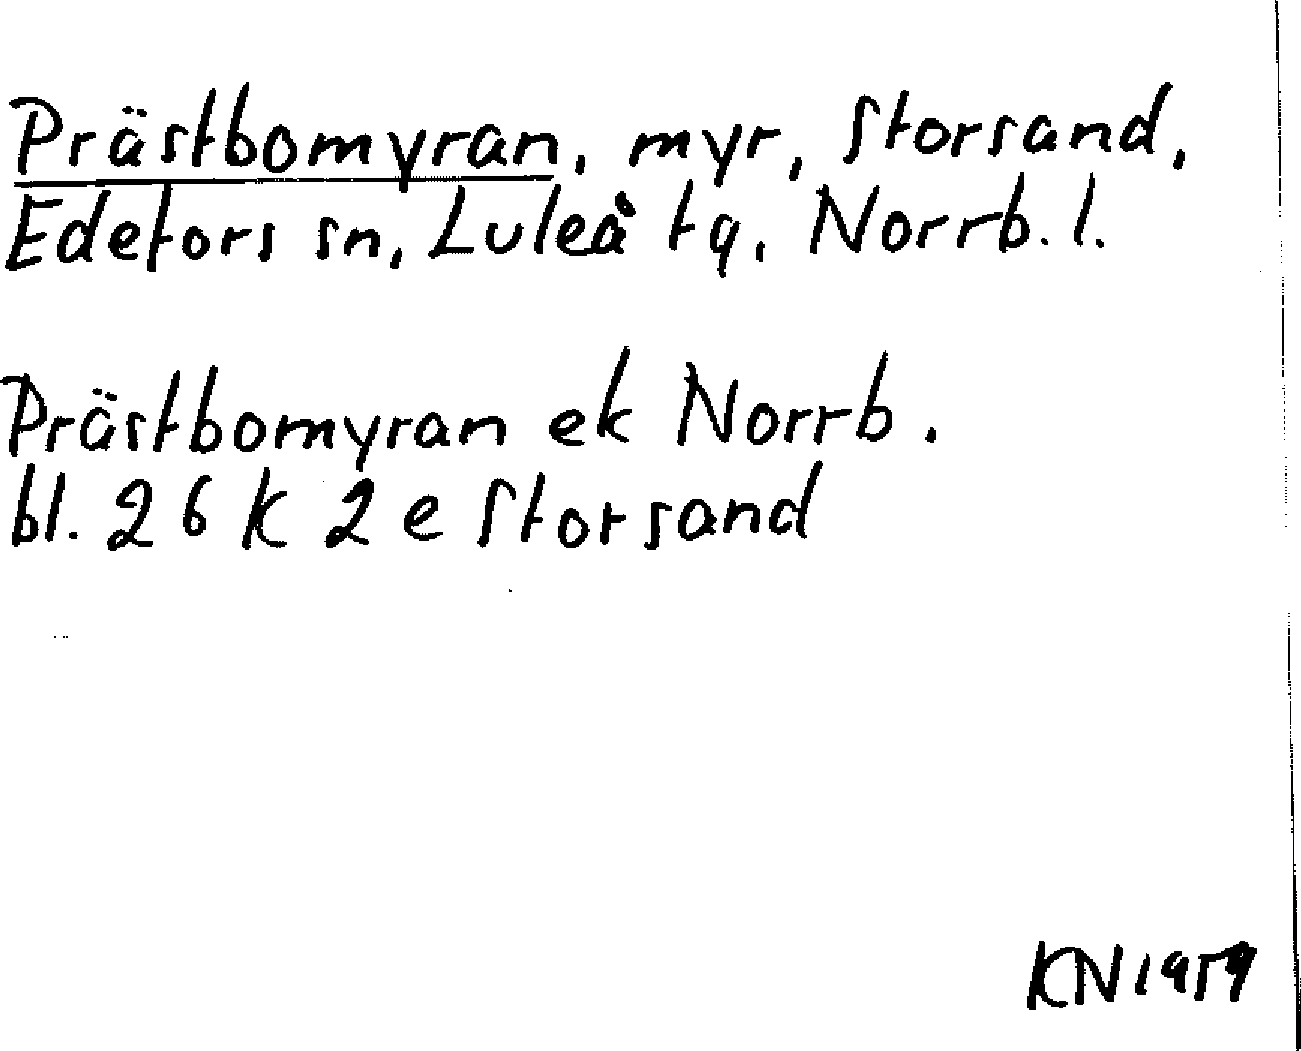 Prästbomyran, myr, Storsand,
Edefors sn, Luleå tg, Norrb. l.
Prästbomyran ek Norrb.
bl. 26 K 2 e Storsand
KN 1959